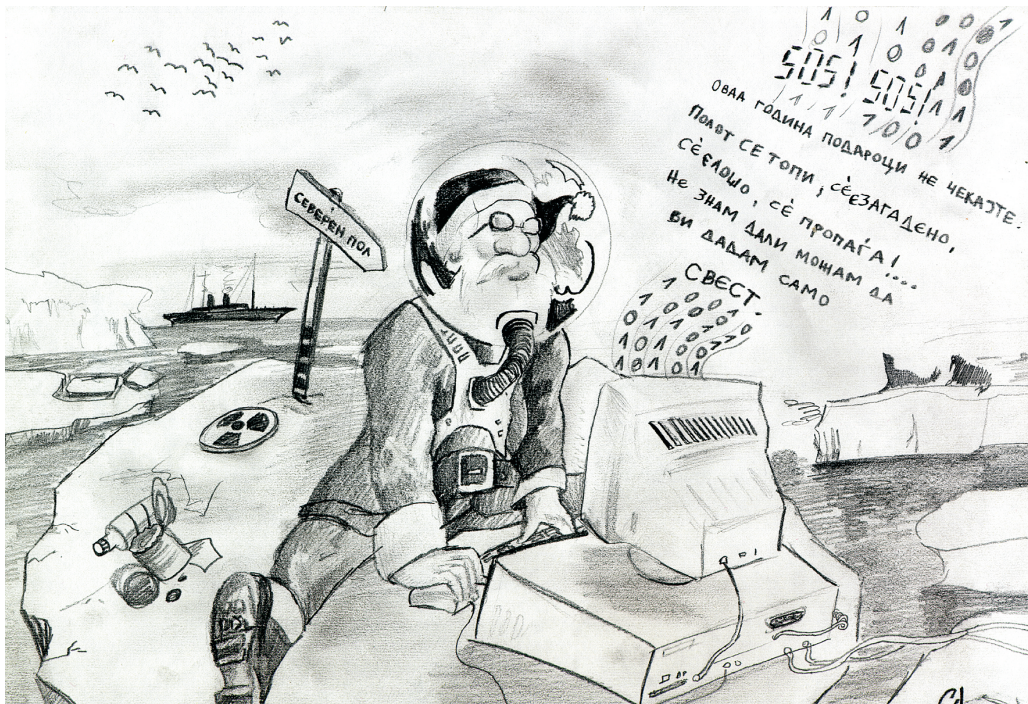 SOS! SOS!
ОВАА ГОДИНА ПОДАРОЦИ НЕ ЧЕКАЈТЕ.
ПОЛОТ СЕ ТОПИ, СЀ Е ЗАГАДЕНО,
СЀ Е ЛОШО, СЀ ПРОПАЃА!....
НЕ ЗНАМ ДАЛИ МОЖАМ ДА
ВИ ДАДАМ САМО
СВЕСТ.
СЕВЕРЕН ПОЛ